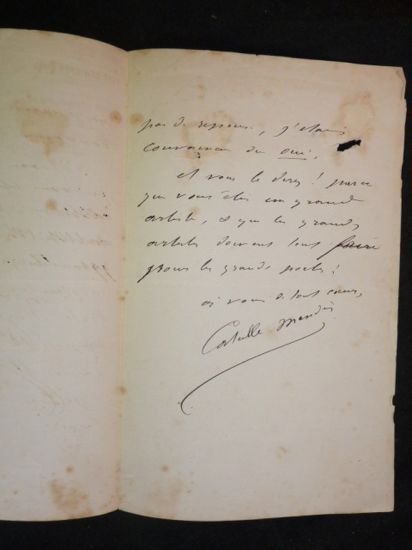 pas de réponse, j'étais
convaincu du oui.
et vous le direz! parce
que vous êtes un grand
artiste, & que les grands
artistes doivent tout faire
pour les grands poëtes!
à vous de tout cœur,
Catulle Mendès